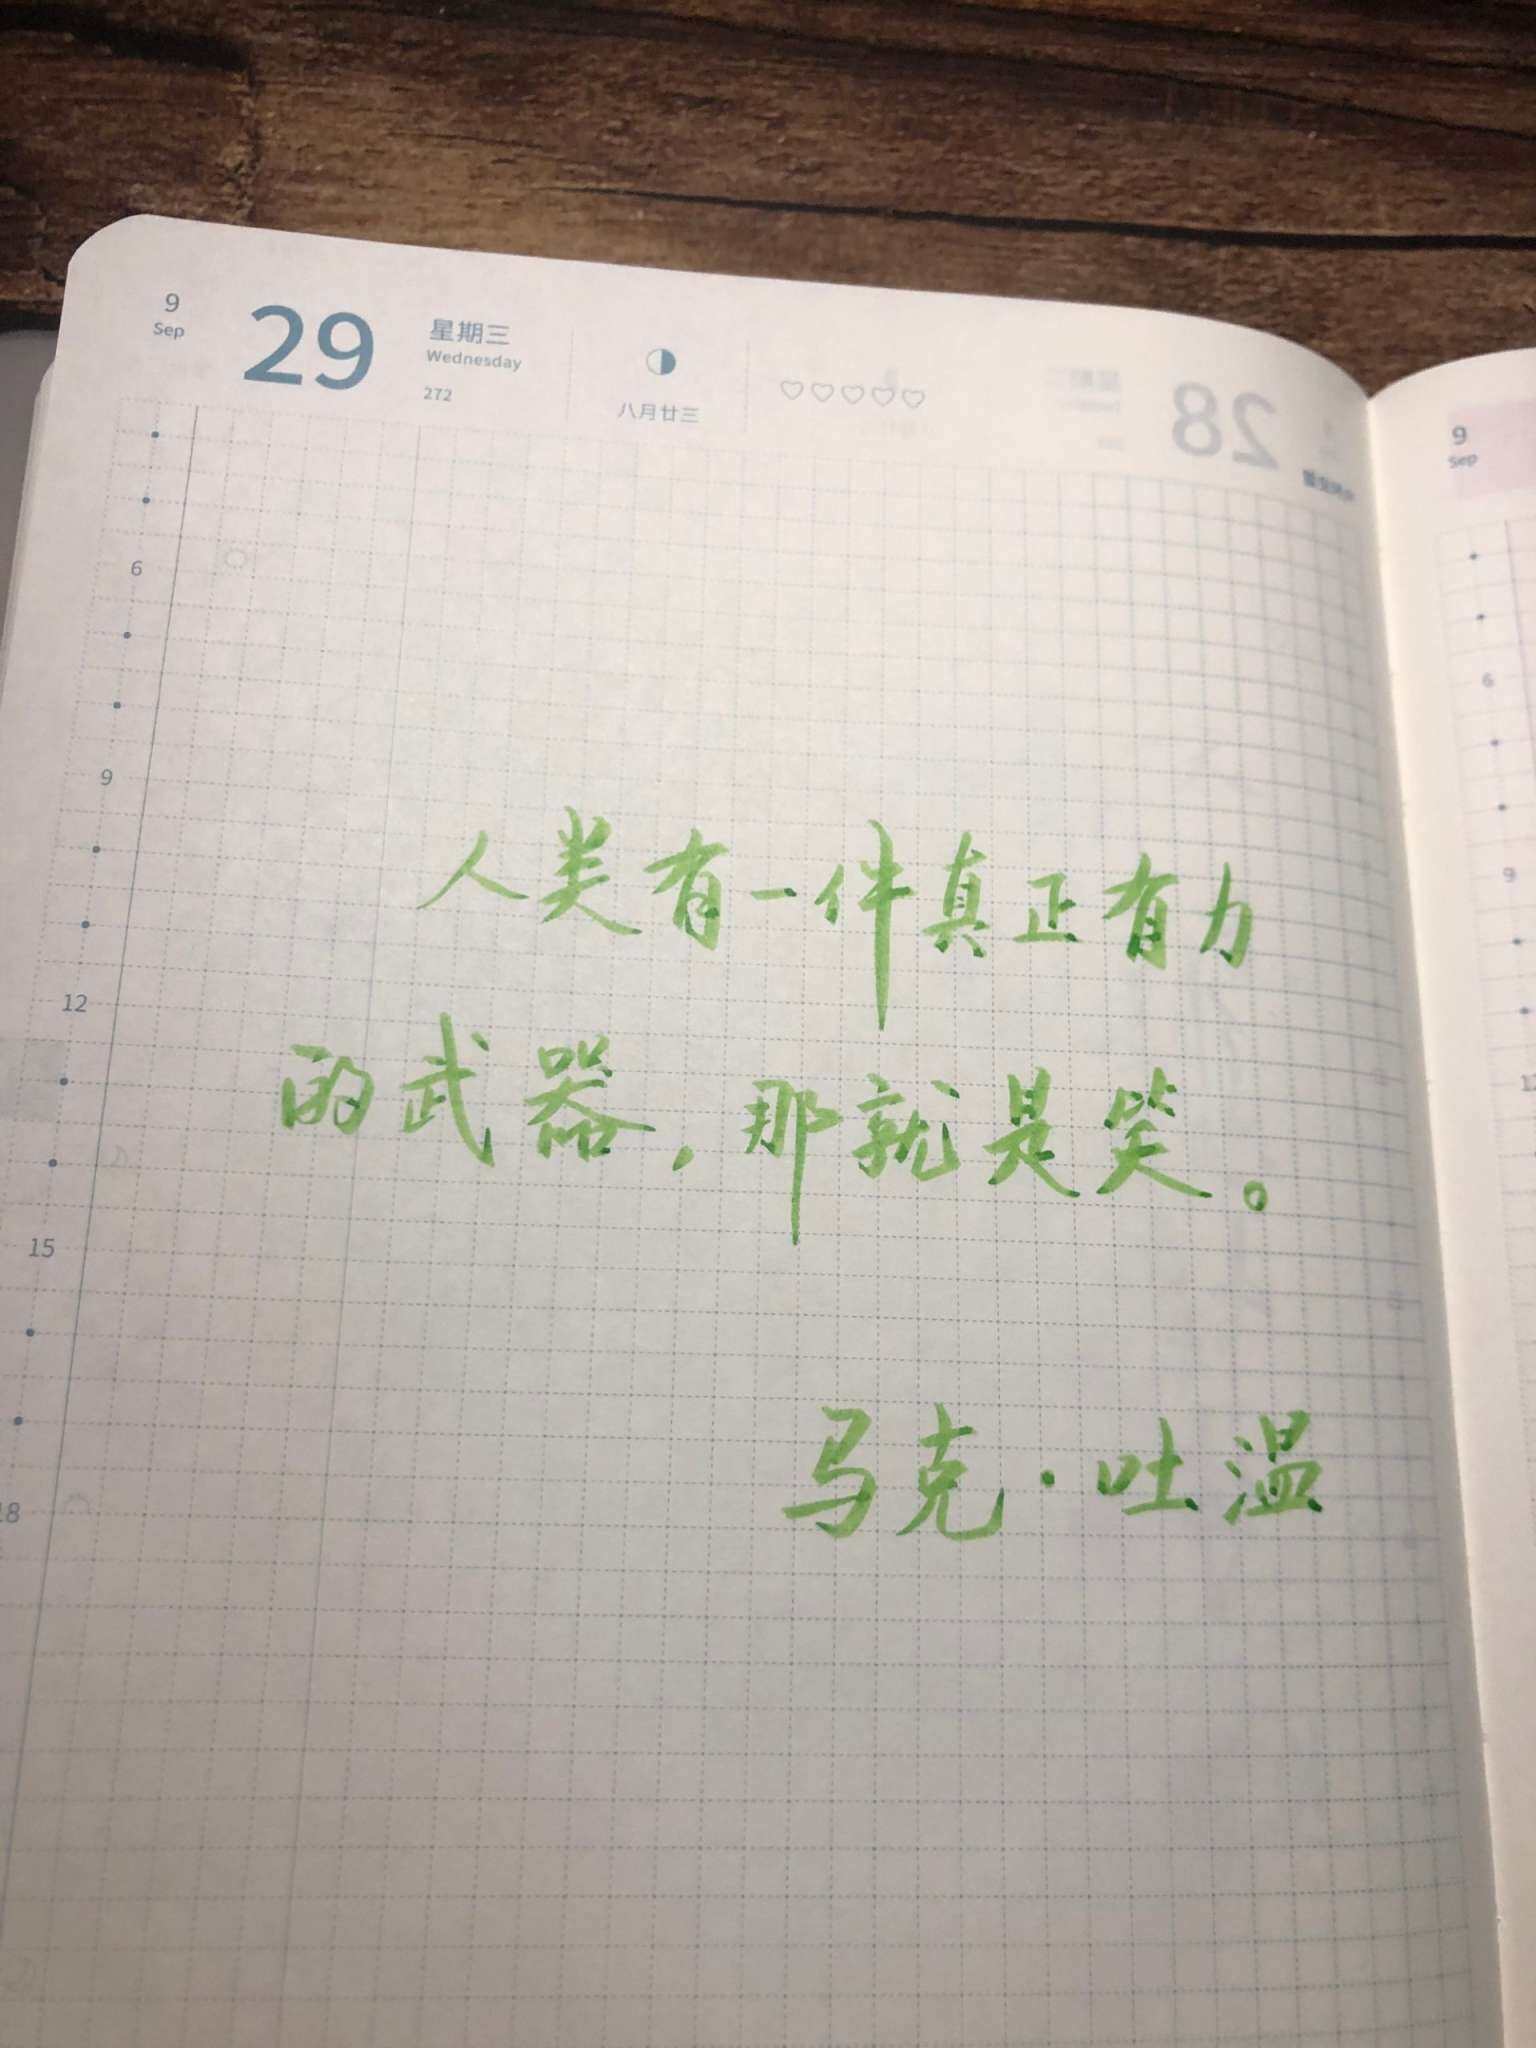 9
Sep
29
星期三
Wednesday
272
八月廿三
28
6
9
12
15
18
人类有一件真正有力
的武器，那就是笑。
马克·吐温
9
Sep
6
9
12